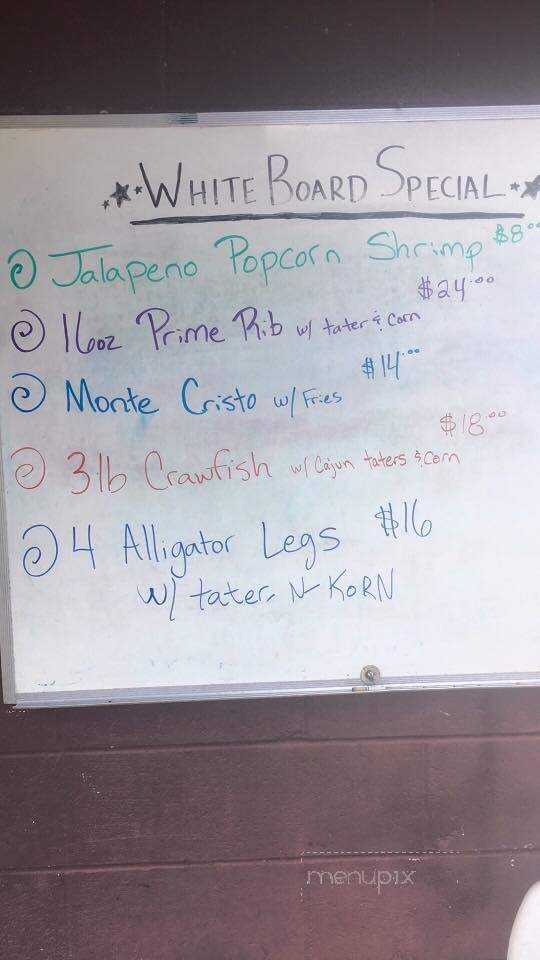 WHITE BOARD SPECIAL
Jalapeno Popcorn Shrimp $8.00
16oz Prime Rib w/ tater & Corn $24.00
Monte Cristo w/ Fries $14.00
3lb Crawfish w/ Cajun taters & Corn $18.00
4 Alligator Legs $16
w/ tater N KORN
menupix